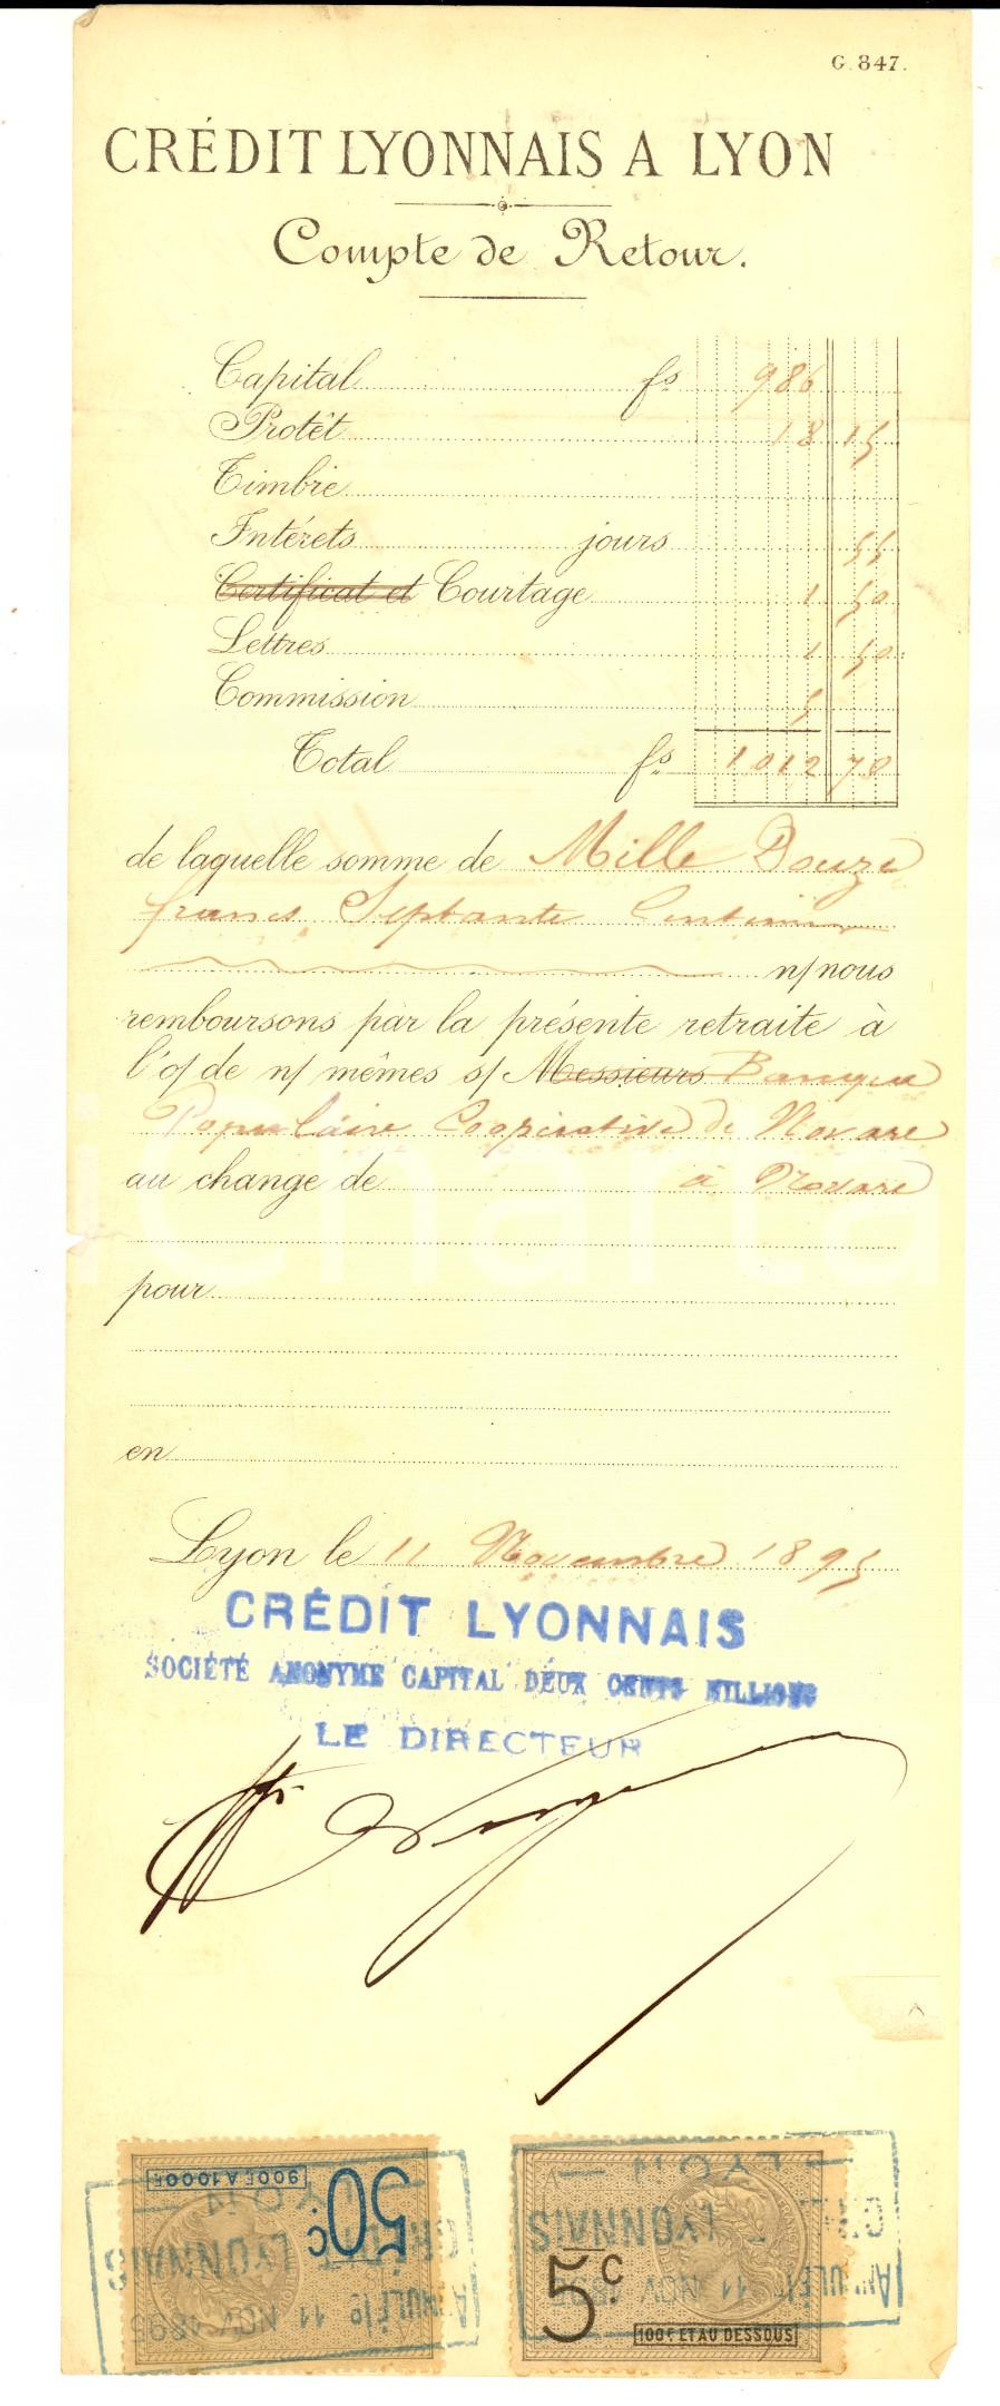 G. 847.
CRÉDIT LYONNAIS A LYON
Compte de Retour.
Capital fs 986
Protêt 18 15
Timbre
Intérets jours 55
Certificat et Courtage 1 50
Lettres 1 50
Commission 5
Total fs 1012 70
de laquelle somme de Mille Douze
francs Septante Centimes
n/ nous
remboursons par la présente retraite à
l'o/ de n/ mêmes s/ Messieurs Banque
Populaire Coopérative de Novare
au change de à Novare
pour
en
Lyon le 11 Novembre 1895
CRÉDIT LYONNAIS
SOCIÉTÉ ANONYME CAPITAL DEUX CENTS MILLIONS
LE DIRECTEUR
50c
900F A 1000F
CRÉDIT LYONNAIS
LYON
ANNULÉ le 11 NOV 1895
5c
100F. ET AU DESSOUS
LYONNAIS
LYON
ANNULÉ le 11 NOV 1895